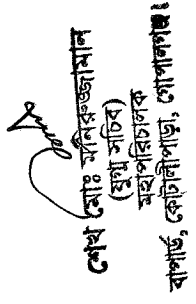 শেখ মোঃ মনিরুজ্জামান
(যুগ্ম সচিব)
মহাপরিচালক
বাপার্ড, কোটালীপাড়া, গোপালগঞ্জ।